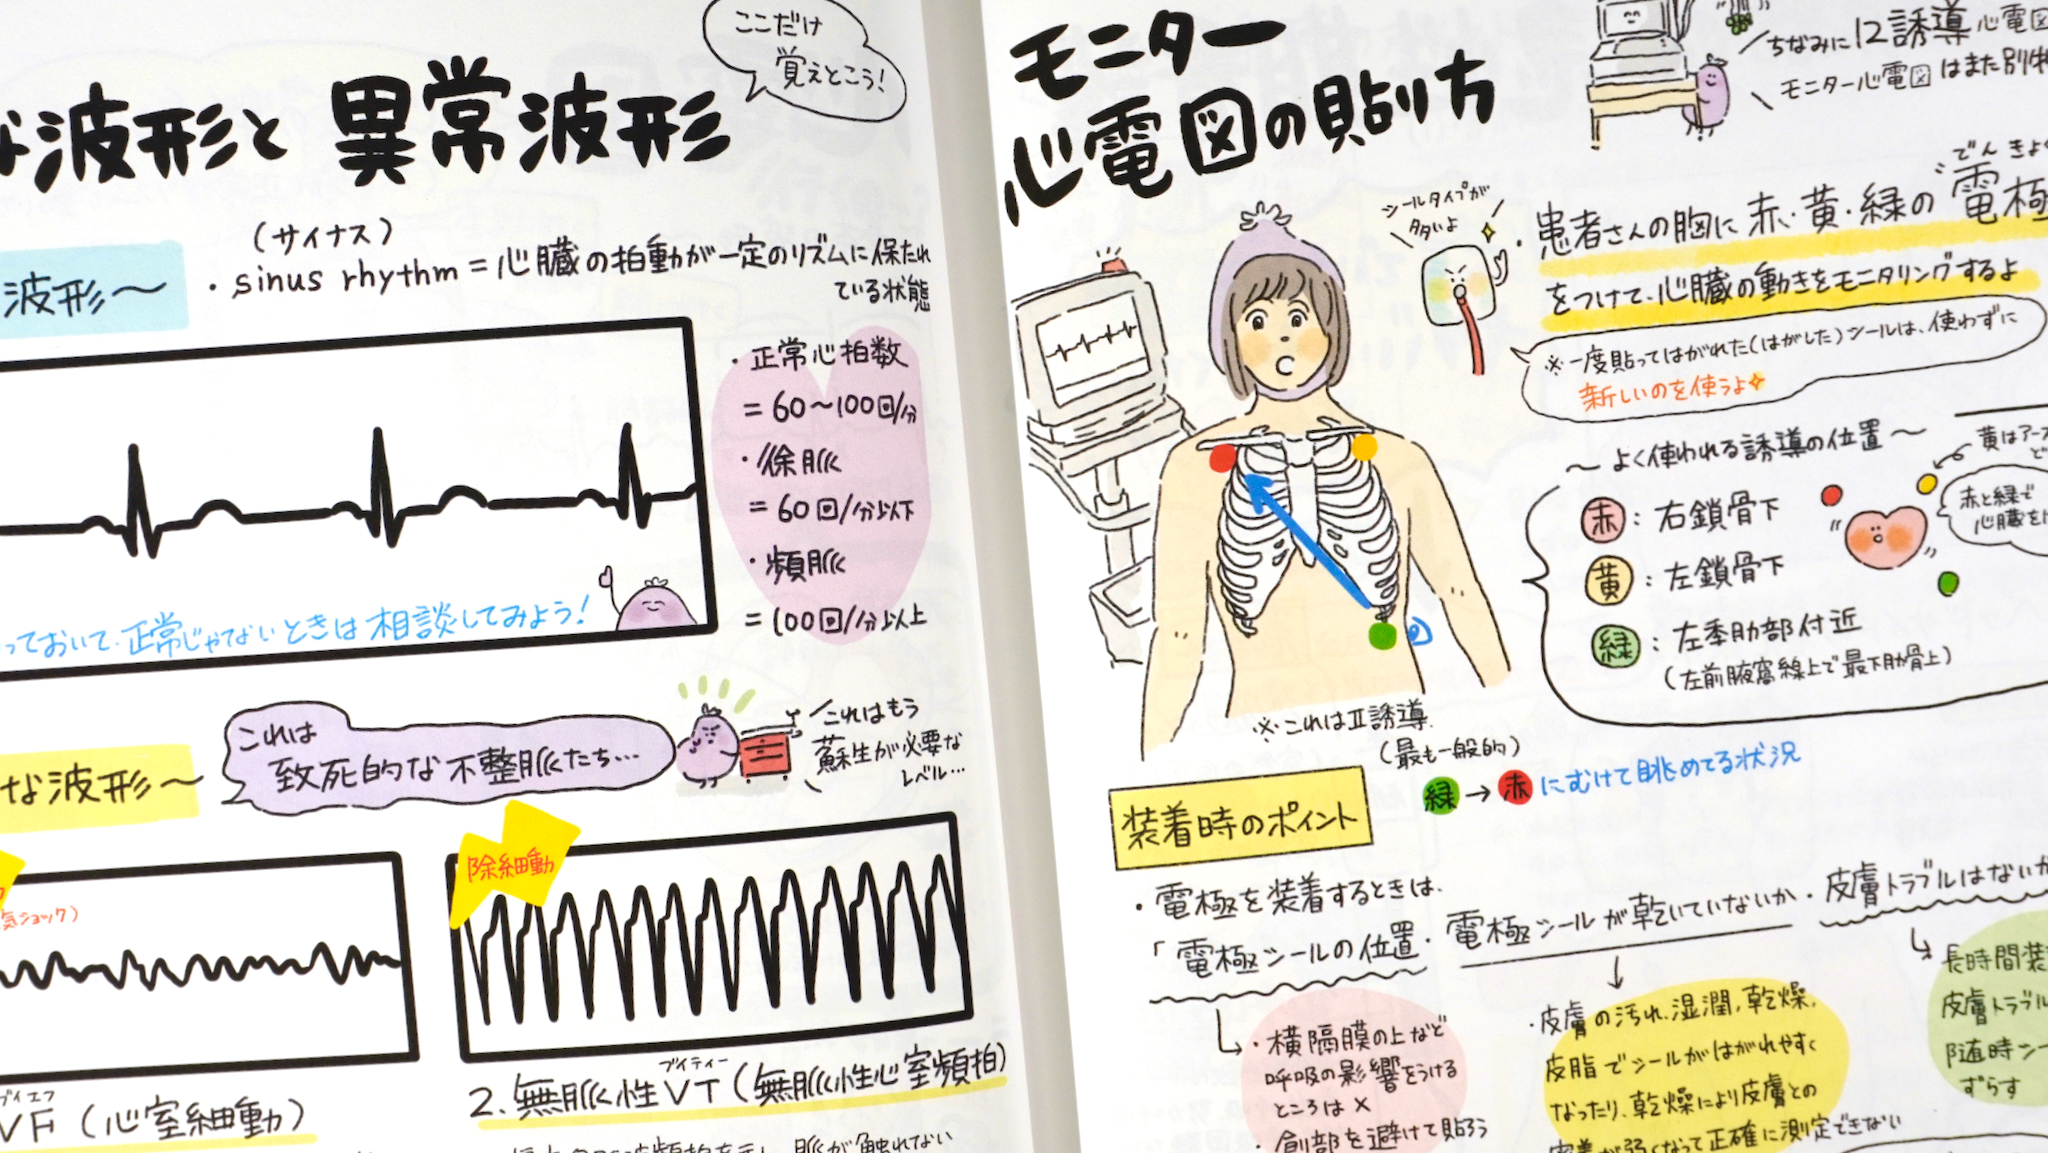 ここだけ
覚えとこう!
な波形と 異常波形
波形〜
(サイナス)
・sinus rhythm = 心臓の拍動が一定のリズムに保たれ
ている状態
・正常心拍数
= 60〜100回/分
・徐脈
= 60回/分以下
・頻脈
= 100回/分以上
っておいて、正常じゃないときは相談してみよう!
な波形〜
これは
致死的な不整脈たち…
これはもう
蘇生が必要な
レベル…
気ショック)
除細動
ブイエフ
VF (心室細動)
ブイティー
2. 無脈性VT (無脈性心室頻拍)
脈が触れない
モニター
心電図の貼り方
ちなみに12誘導心電図
モニター心電図はまた別物
シールタイプが
多いよ
でんきょく
・患者さんの胸に赤・黄・緑の電極
をつけて、心臓の動きをモニタリングするよ
※一度貼ってはがれた(はがした)シールは、使わずに
新しいのを使うよ
〜よく使われる誘導の位置〜
黄はアース
赤と緑で
心臓を
赤:右鎖骨下
黄:左鎖骨下
緑:左季肋部付近
(左前腋窩線上で最下肋骨上)
※これはⅡ誘導
(最も一般的)
緑→赤にむけて眺めてる状況
装着時のポイント
・電極を装着するときは、
「電極シールの位置・電極シールが乾いていないか・皮膚トラブルはないか
・横隔膜の上など
呼吸の影響をうける
ところは×
・創部を避けて貼ろう
・皮膚の汚れ、湿潤、乾燥、
皮脂でシールがはがれやすく
なったり、乾燥により皮膚との
密着が弱くなって正確に測定できない
長時間装
皮膚トラブル
随時シー
ずらす